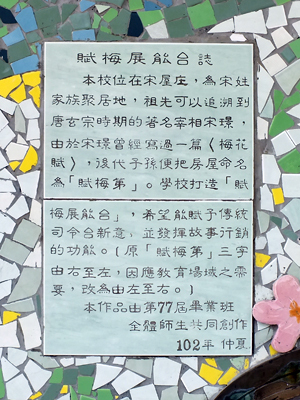 賦梅展能台誌
本校位在宋屋庄,為宋姓
家族聚居地,祖先可以追溯到
唐玄宗時期的著名宰相宋璟,
由於宋璟曾經寫過一篇〈梅花
賦〉,後代子孫便把房屋命名
為「賦梅第」。學校打造「賦
梅展能台」,希望能賦予傳統
司令台新意,並發揮故事行銷
的功能。(原「賦梅第」三字
由右至左,因應教育場域之需
要,改為由左至右。)
本作品由第77屆畢業班
全體師生共同創作
102年 仲夏